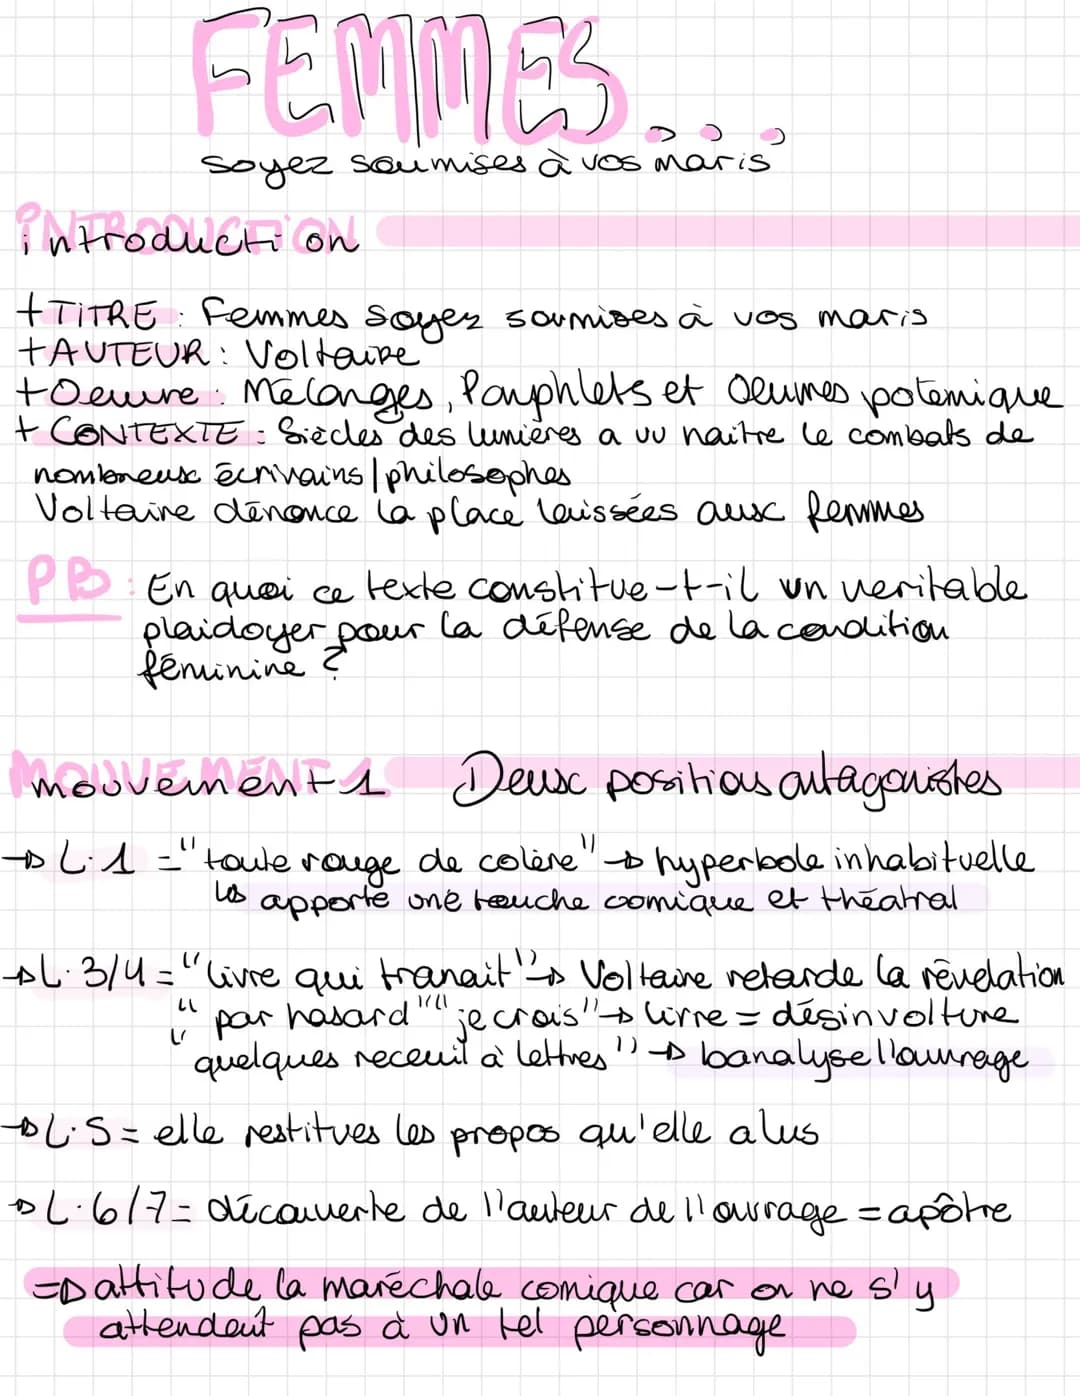 FEMMES...
soyez soumises à vos maris
INTRODUCTION
introduction
+TITRE : Femmes soyez soumises à vos maris
+AUTEUR : Voltaire
+Oeuvre : Mélanges, Pamphlets et Oeuvres polémique
+ CONTEXTE : Siècles des lumières a vu naître le combats de
nombreux écrivains/philosophes
Voltaire dénonce la place laissées aux femmes
PB : En quoi ce texte constitue-t-il un veritable
plaidoyer pour la défense de la condition
féminine ?
MOUVEMENT 1
mouvement 1 Deux positions antagonistes
→ L.1 = "toute rouge de colère" → hyperbole inhabituelle
↳ apporte une touche comique et théatral
→ L.3/4 = "livre qui tranait" → Voltaire retarde la révélation
"par hasard" "je crois" → livre = désinvolture
"quelques receuil à lettres" → banalyse l'ouvrage
→ L.5 = elle restitues les propos qu'elle a lus
→ L.6/7 = découverte de l'auteur de l'ouvrage = apôtre
⇒ attitude la maréchale comique car on ne s'y
attendent pas à un tel personnage